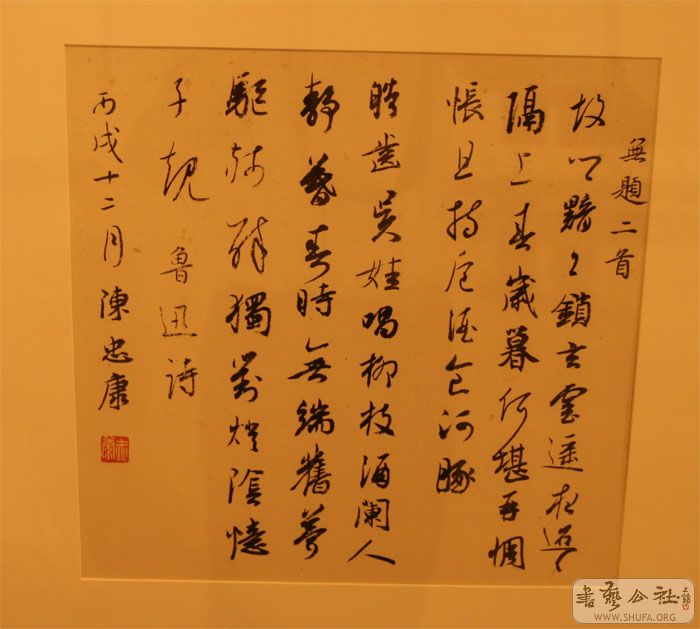 無題二首
故鄉黯〻鎖玄雲遥夜迢〻
隔上春歲暮何堪再惆
悵且持卮酒食河豚
皓齒吳娃唱柳枝酒闌人
靜暮春時無端舊夢
驅殘醉獨對燈陰憶
子規 魯迅詩
丙戌十二月 陳忠康
書藝公社
WWW.SHUFA.ORG